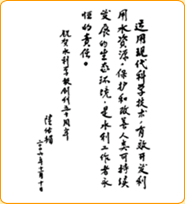 运用现代科学技术，有效开发利
用水资源，保护和改善人类可持续
发展的生态环境，是水利工作者永
恒的责任。
祝贺水利学报创刊五十周年
二〇〇六年二月十日